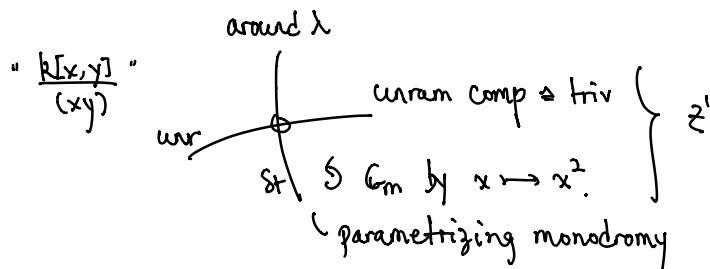 around λ
" k[x,y] / (xy) "
unram comp ≙ triv
unr
z'
St ↺ G_m by x ↦ x².
parametrizing monodromy